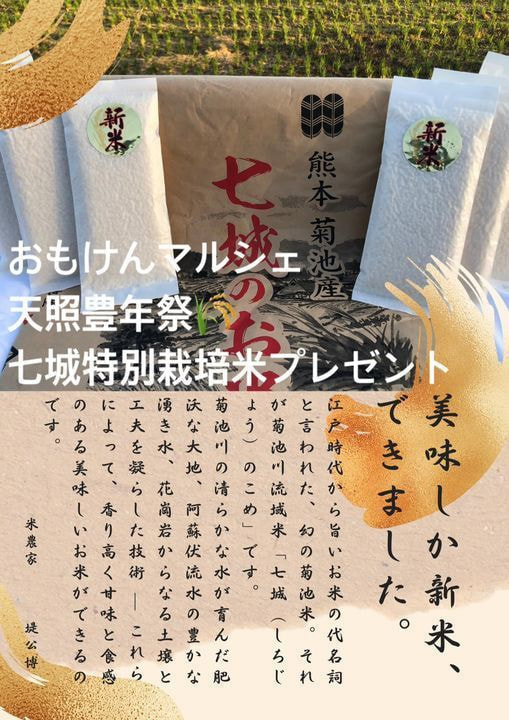 新米
新米
熊本 菊池産
七城のお
おもけんマルシェ
天照豊年祭🌾
七城特別栽培米プレゼント
美味しか新米、
できました。
江戸時代から旨いお米の代名詞
と言われた、幻の菊池米。それ
が菊池川流域米「七城(しちじ
ょう)のこめ」です。
菊池川の清らかな水が育んだ肥
沃な大地、阿蘇伏流水の豊かな
湧き水、花崗岩からなる土壌と
工夫を凝らした技術 ― これら
によって、香り高く甘味と食感
のある美味しいお米ができるの
です。
米農家 堤公博